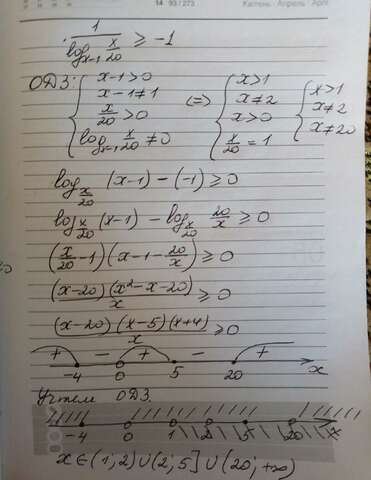 14 93/273
Квітень · Апрель · April
1/(log_{x-1} x/20) ≥ -1
ОДЗ: { x-1>0 ; x-1≠1 ; x/20 >0 ; log_{x-1} x/20 ≠0 (=) { x>1 ; x≠2 ; x>0 ; x/20 = 1 { x>1 ; x≠2 ; x≠20
log_{x/20} (x-1) - (-1) ≥ 0
log_{x/20} (x-1) - log_{x/20} 20/x ≥ 0
(x/20 -1)(x-1-20/x) ≥ 0
(x-20)(x²-x-20)/x ≥ 0
(x-20)(x-5)(x+4)/x ≥ 0
+ - + - +
-4 0 5 20 x
Учтём ОДЗ.
-4 0 1 2 5 20 x
x∈(1;2)∪(2;5]∪(20;+∞)